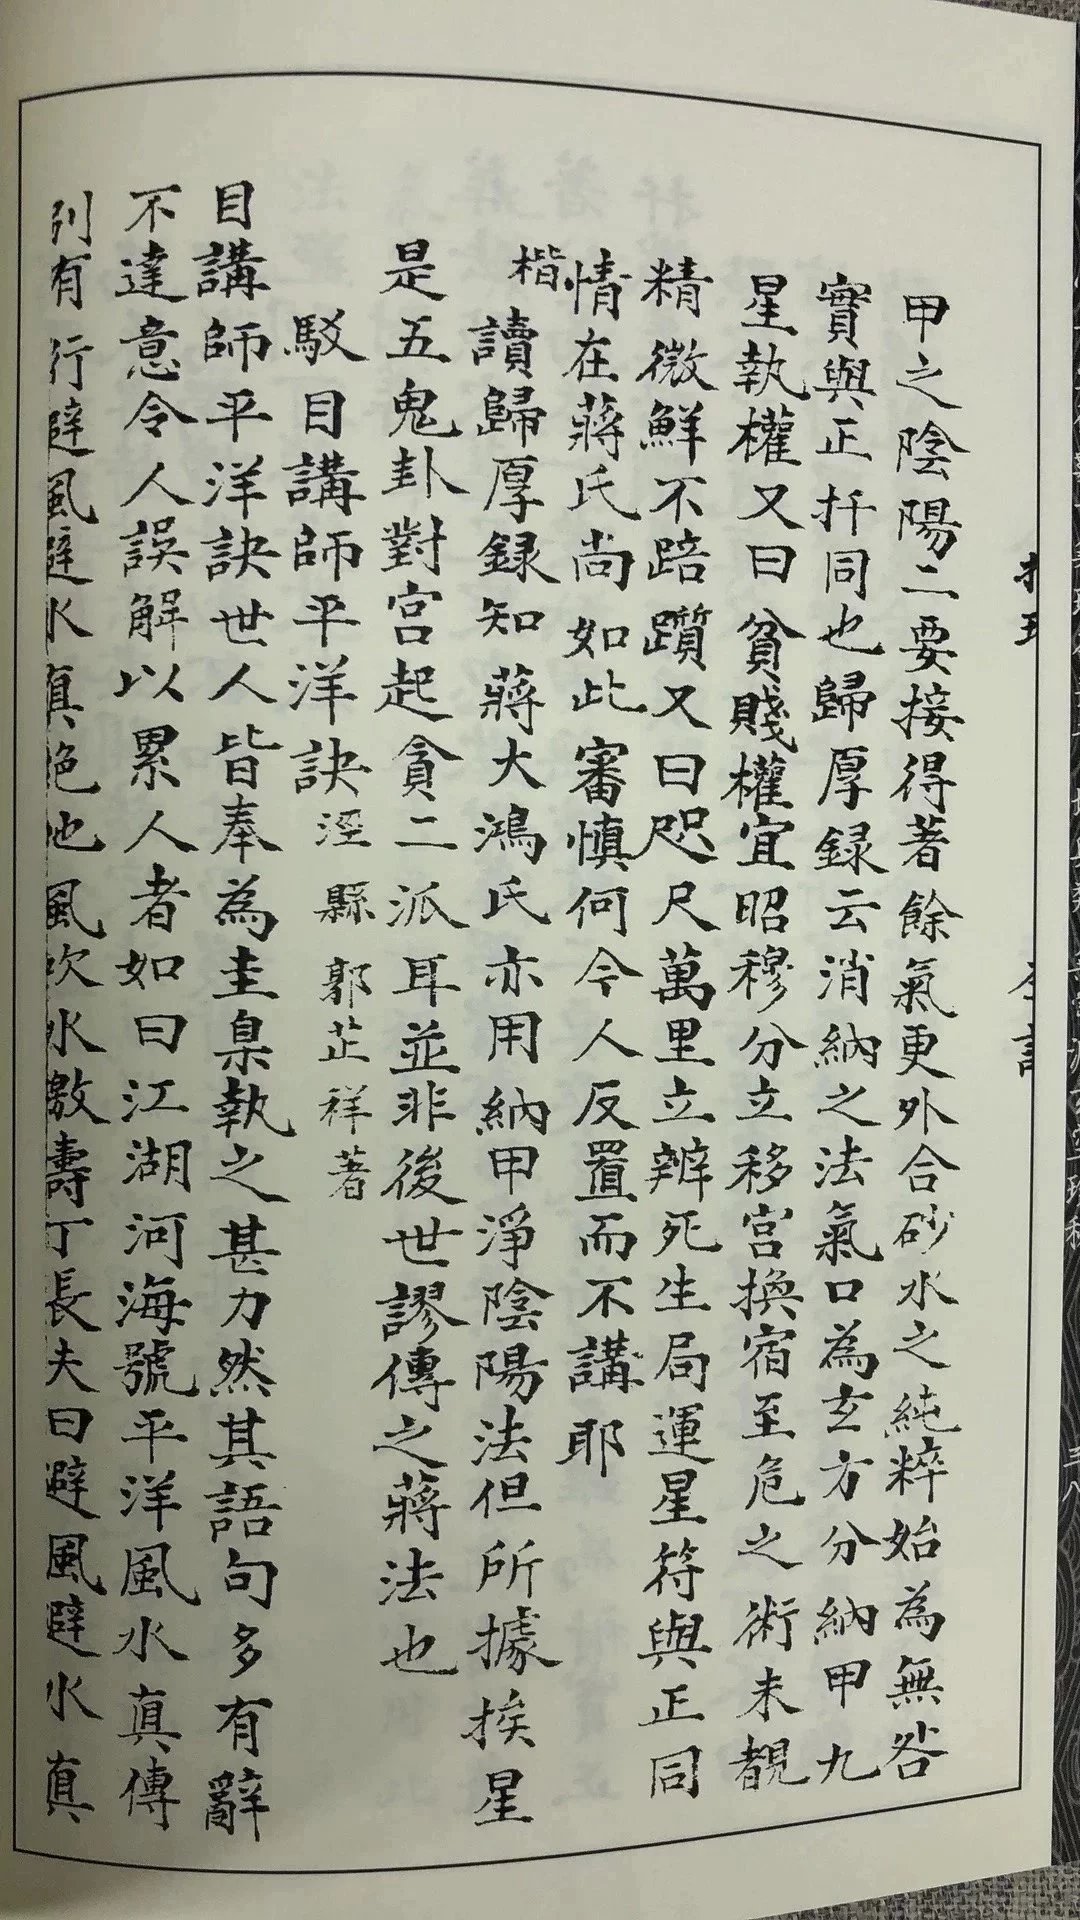 甲之陰陽二要接得著餘氣更外合砂水之純粹始為無咎
實與正扦同也歸厚録云消納之法氣口為玄方分納甲九
星執權又曰貧賤權宜昭穆分立移宮換宿至危之術未覩
精微鮮不踣躓又曰咫尺萬里立辨死生局運星符與正同
情在蔣氏尚如此審慎何今人反置而不講耶
楷讀歸厚録知蔣大鴻氏亦用納甲淨陰陽法但所據挨星
是五鬼卦對宮起貪二派耳並非後世謬傳之蔣法也
駁目講師平洋訣 涇縣郭芷祥著
目講師平洋訣世人皆奉為圭臬執之甚力然其語句多有辭
不達意令人誤解以累人者如曰江湖河海號平洋風水真傳
別有行避風避水真絶地風吹水激壽丁長夫曰避風避水真